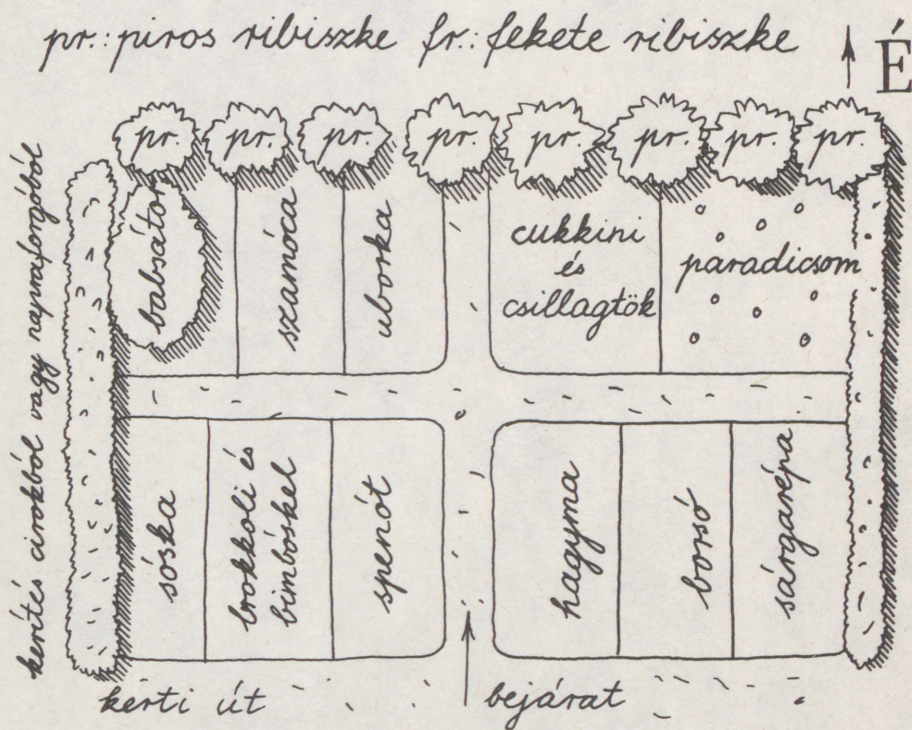 pr.: piros ribiszke fr.: fekete ribiszke
É
pr. pr. pr. pr. pr. pr. pr. pr.
kerítés cirokból vagy napraforgóból
babsátor
szamóca
uborka
cukkini
és
csillagtök
paradicsom
sóska
brokkoli és
bimbóskel
spenót
hagyma
borsó
sárgarépa
kerti út
bejárat